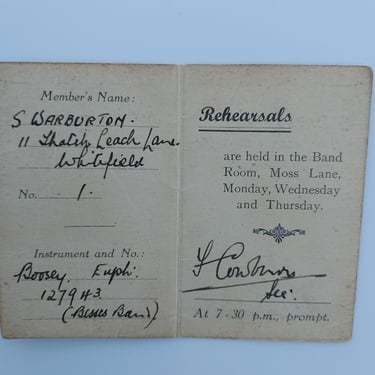 Member's Name:
S WARBURTON.
11 Thatch Leach Lane.
Whitefield
No. 1.
Instrument and No.:
Boosey Euph.
127943
(Besses Band).
Rehearsals
are held in the Band
Room, Moss Lane,
Monday, Wednesday
and Thursday.
Sec:
At 7-30 p.m., prompt.